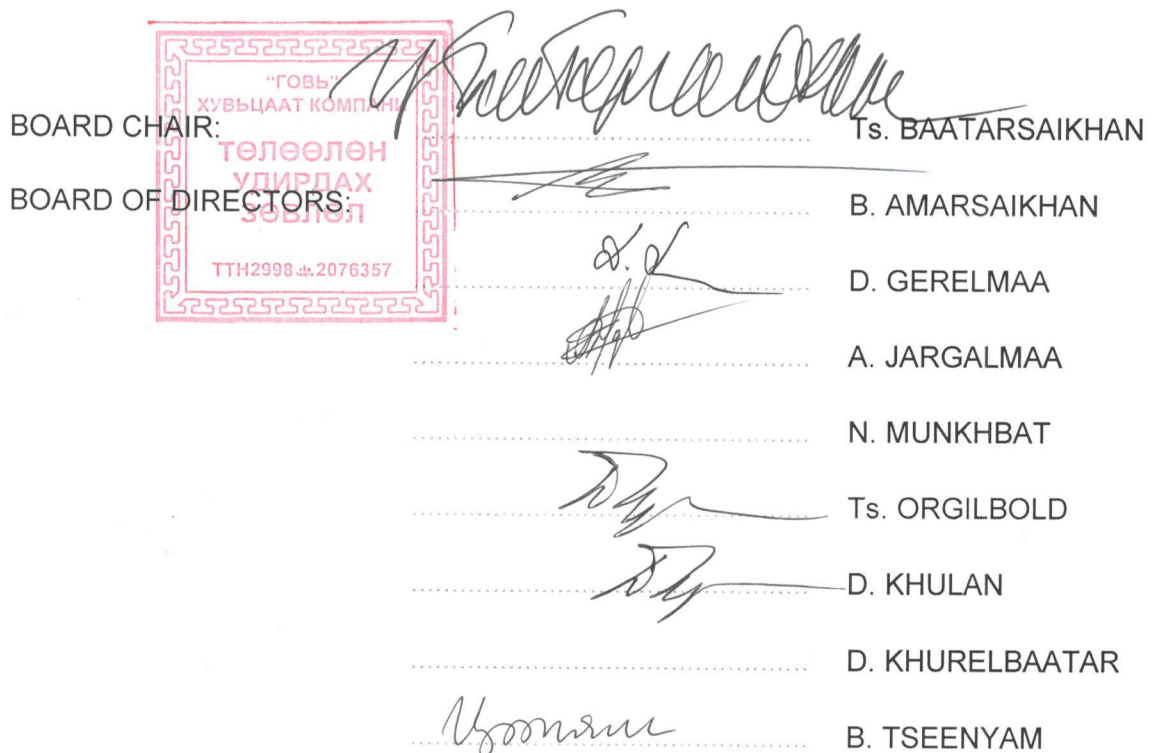 "ГОВЬ"
ХУВЬЦААТ КОМПАНИ
ТӨЛӨӨЛӨН
УДИРДАХ
ЗӨВЛӨЛ
ТТН2998 2076357
BOARD CHAIR: Ts. BAATARSAIKHAN
BOARD OF DIRECTORS: B. AMARSAIKHAN
D. GERELMAA
A. JARGALMAA
N. MUNKHBAT
Ts. ORGILBOLD
D. KHULAN
D. KHURELBAATAR
B. TSEENYAM